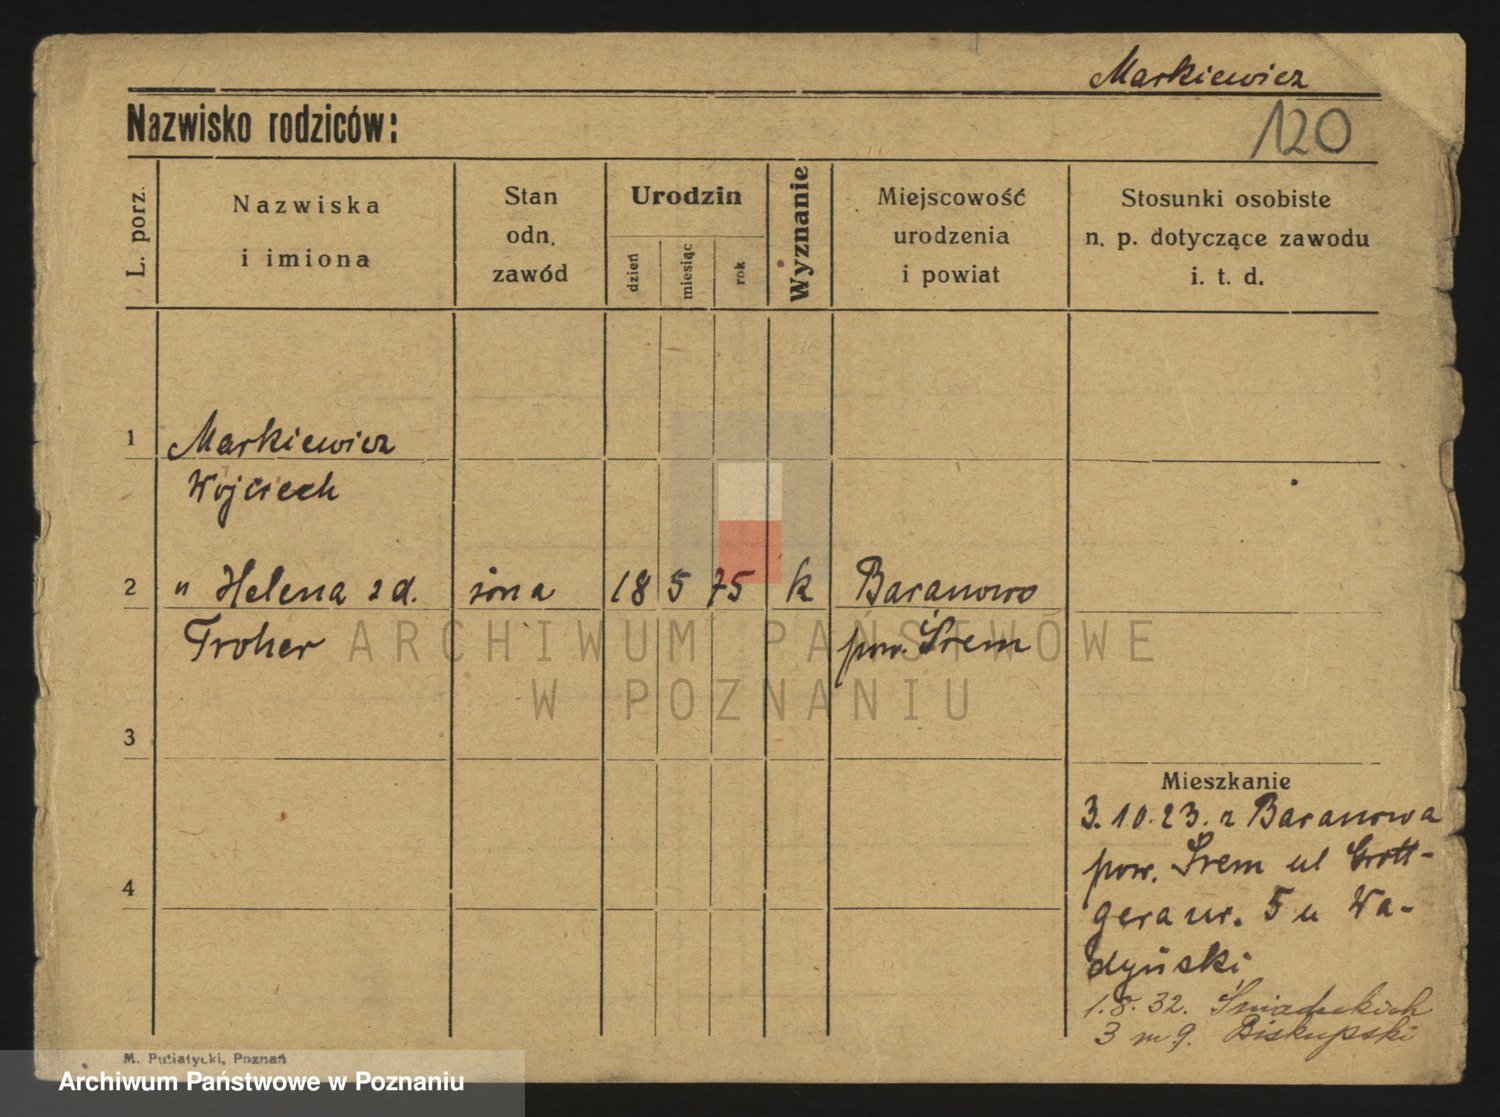 Markiewicz
Nazwisko rodziców:
120
L. porz.
Nazwiska
i imiona
Stan
odn.
zawód
Urodzin
dzień
miesiąc
rok
Wyznanie
Miejscowość
urodzenia
i powiat
Stosunki osobiste
n. p. dotyczące zawodu
i. t. d.
1 Markiewicz
Wojciech
2 " Helena z d. żona 18 5 75 k Baranowo
Troher pow. Śrem
ARCHIWUM PAŃSTWOWE
W POZNANIU
3
Mieszkanie
3.10.23. z Baranowa
pow. Śrem ul Grott-
4
gera nr. 5 u Wa-
dyński
1.8.32. Śniadeckich
3 m 9. Biskupski
M. Putiatycki, Poznań
Archiwum Państwowe w Poznaniu